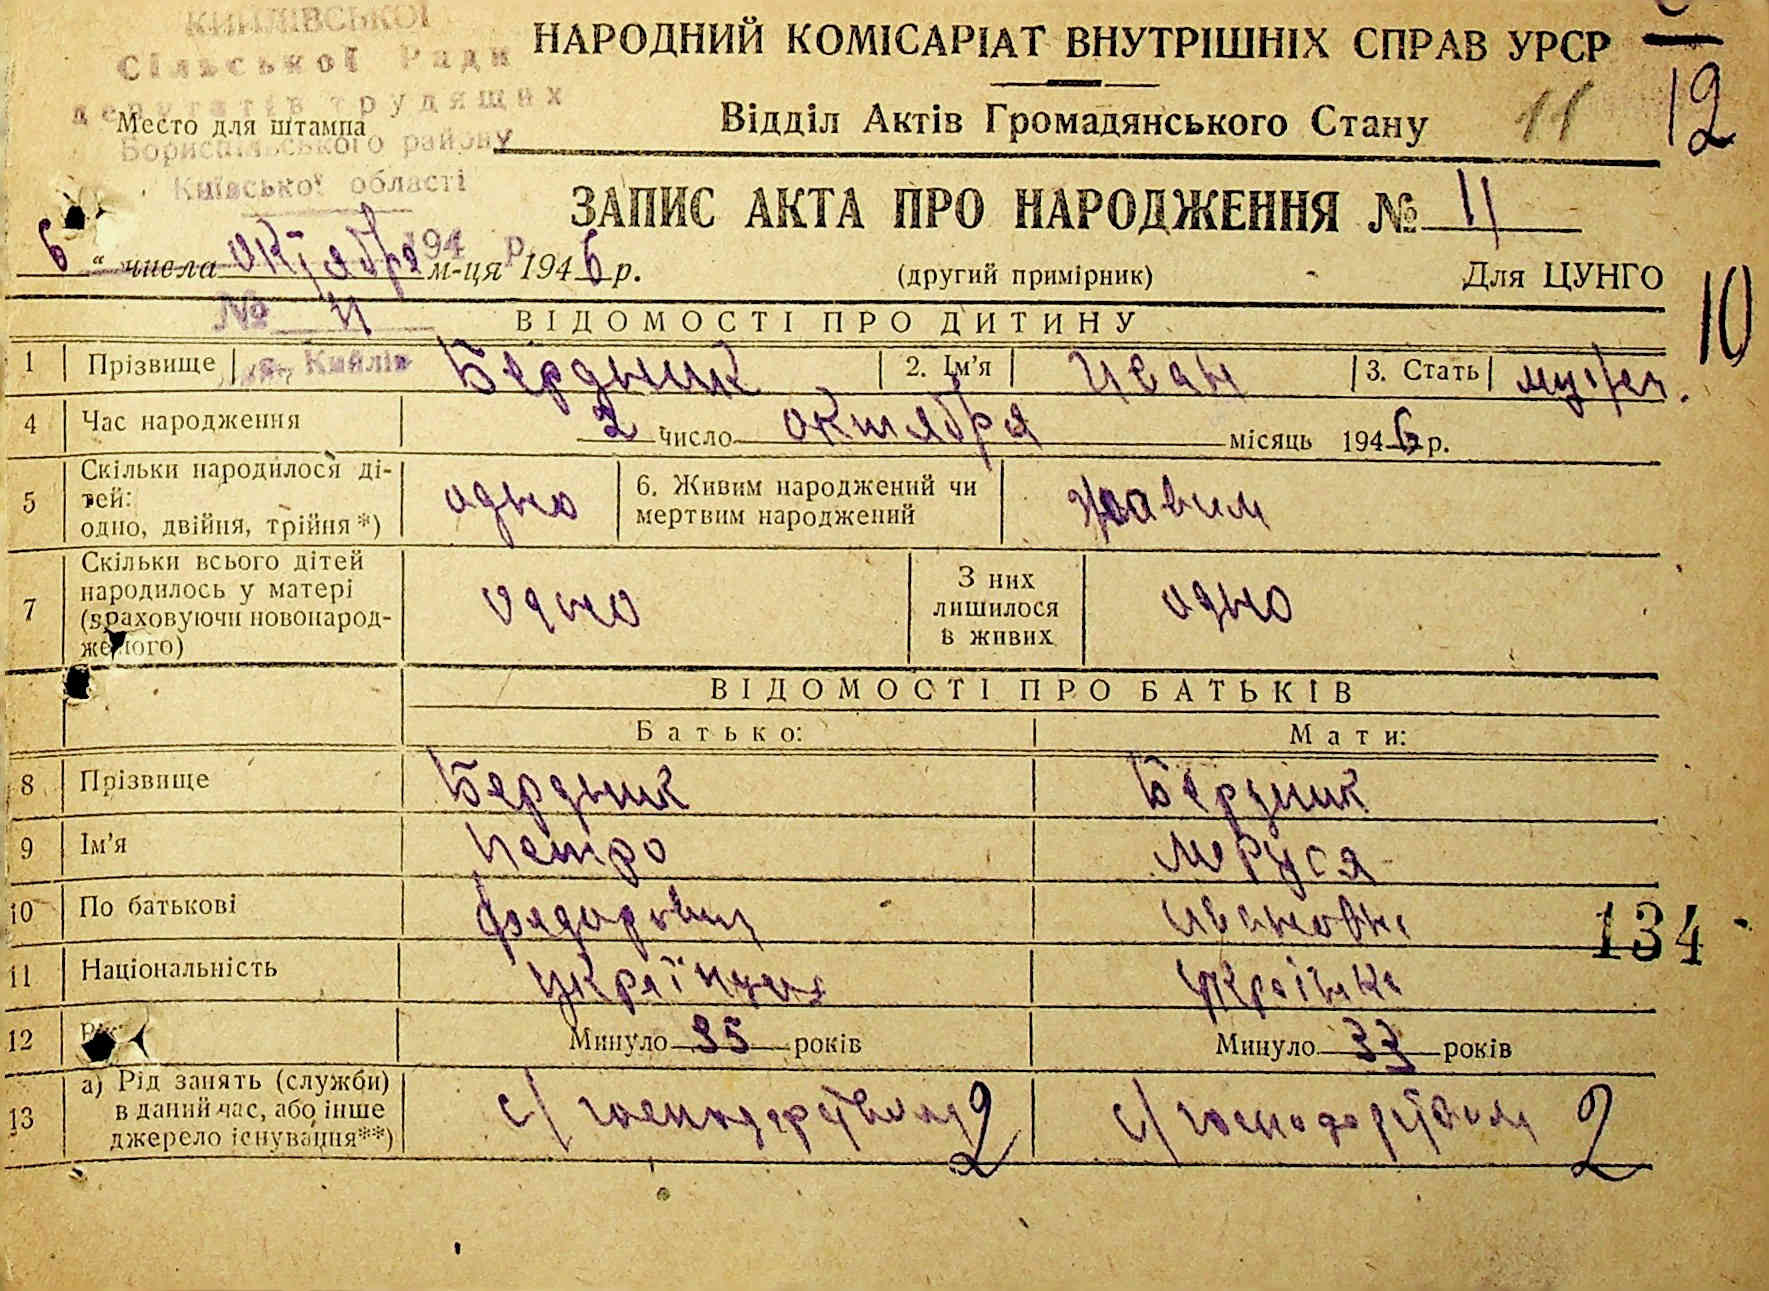 КИЙЛІВСЬКОЇ
Сільської Ради
депутатів трудящих
Бориспільського району
Київської області
194 р.
№ 11
с. Кийлів
Место для штампа
НАРОДНИЙ КОМІСАРІАТ ВНУТРІШНІХ СПРАВ УРСР
12
Відділ Актів Громадянського Стану
11
ЗАПИС АКТА ПРО НАРОДЖЕННЯ № 11
6 " числа октября м-ця 1946 р.
(другий примірник)
Для ЦУНГО
10
ВІДОМОСТІ ПРО ДИТИНУ
1 Прізвище Бердник 2. Ім'я Иван 3. Стать мужеч.
4 Час народження 2 число октября місяць 1946 р.
5 Скільки народилося ді-
тей:
одно, двійня, трійня*) одно 6. Живим народжений чи
мертвим народжений живим
7 Скільки всього дітей
народилось у матері
(враховуючи новонарод-
женого) одно З них
лишилося
в живих одно
ВІДОМОСТІ ПРО БАТЬКІВ
Батько: Мати:
8 Прізвище Бердник Бердник
9 Ім'я Петро Маруся
10 По батькові Федорович Ивановна
134
11 Національність українець українка
12 Минуло 35 років Минуло 33 років
13 а) Рід занять (служби)
в даний час, або інше
джерело існування**) с/господарством 2 с/господарством 2